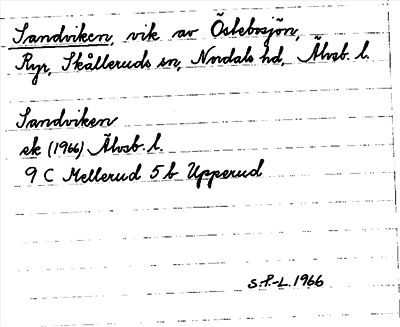 Sandviken, vik av Östebosjön,
Ryr, Skålleruds sn, Nordals hd, Älvsb. l.
Sandviken
ek (1966) Älvsb. l.
9 C Mellerud 5 b Upperud
S.-P.-L. 1966